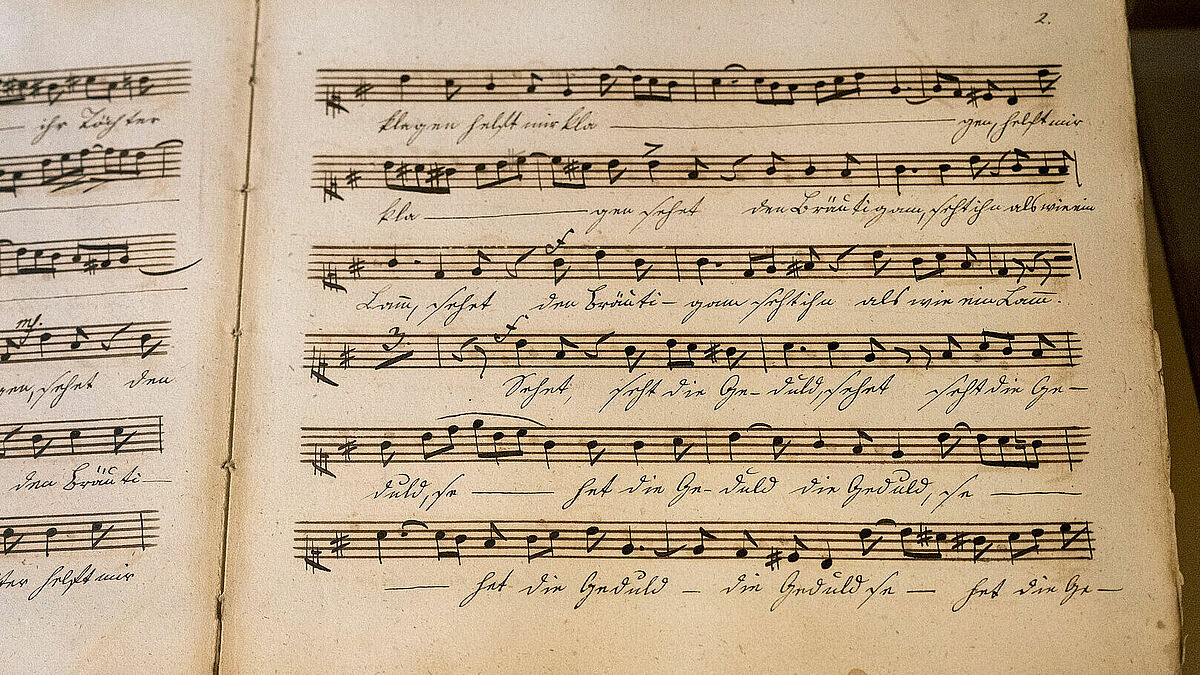 ihr Töchter
mf.
gen, sehet den
den Bräuti-
ter helft mir
2.
klagen helft mir kla — gen, helft mir
kla — gen sehet den Bräutigam, seht ihn als wie ein
f
Lam̅, sehet den Bräuti- gam seht ihn als wie ein Lam̅.
3. f
Sehet, seht die Ge- duld, sehet seht die Ge-
duld, se — het die Ge- duld die Geduld, se —
— het die Geduld – die Geduld se — het die Ge-